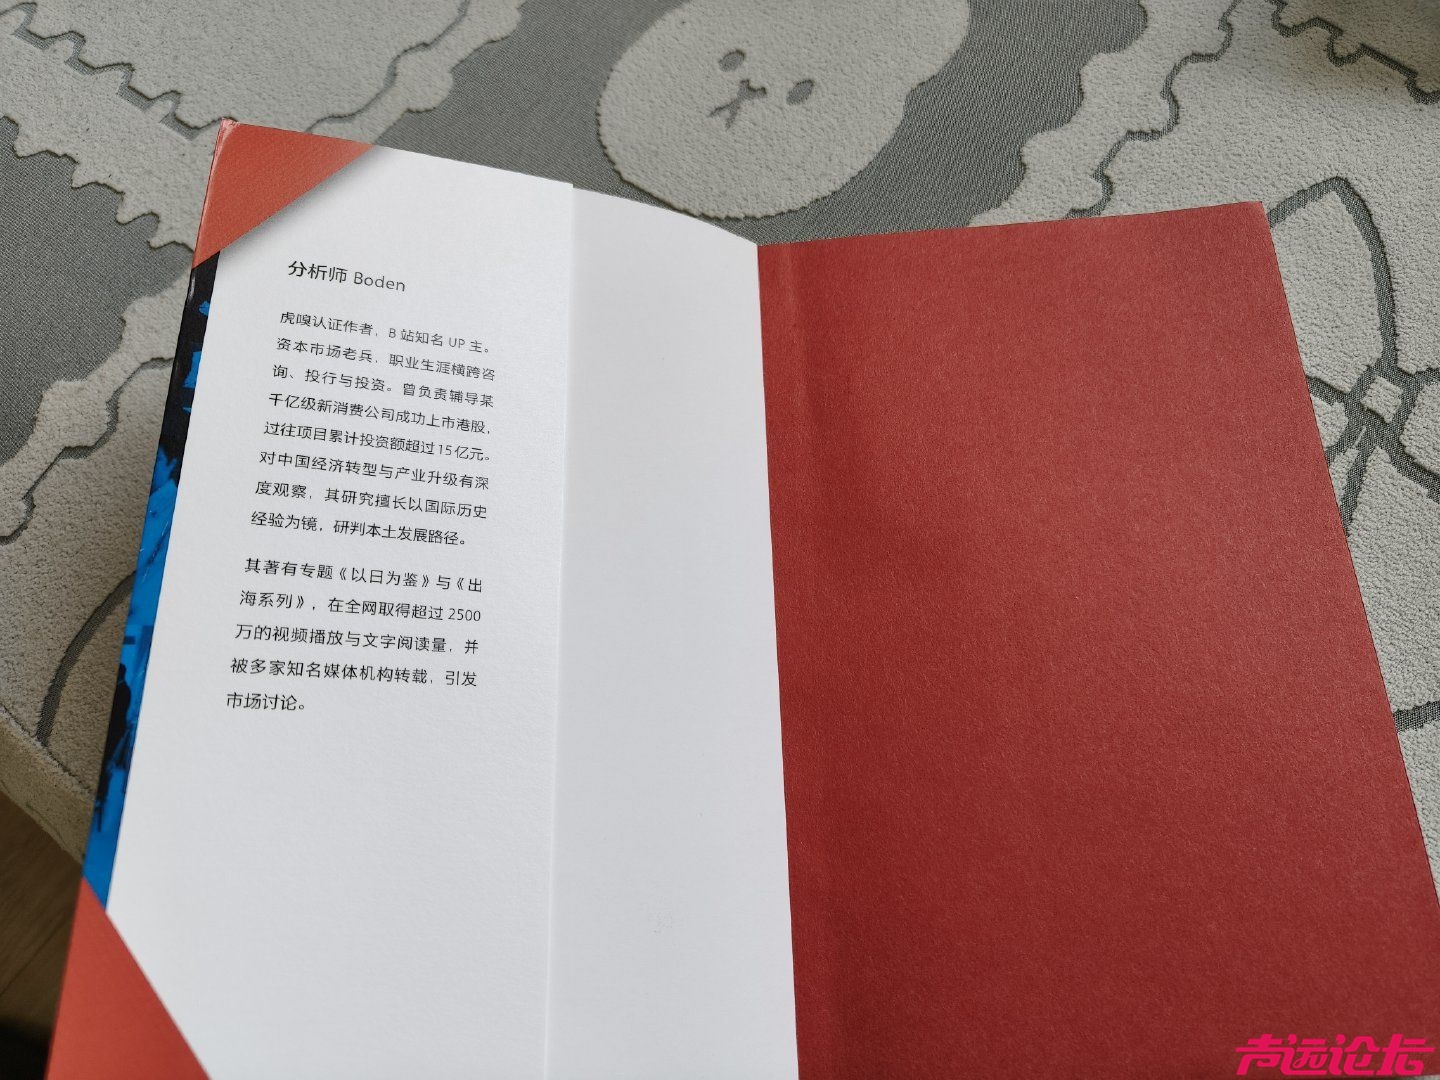 分析师 Boden
虎嗅认证作者，B 站知名 UP 主。
资本市场老兵，职业生涯横跨咨
询、投行与投资。曾负责辅导某
千亿级新消费公司成功上市港股，
过往项目累计投资额超过 15 亿元。
对中国经济转型与产业升级有深
度观察，其研究擅长以国际历史
经验为镜，研判本土发展路径。
其著有专题《以日为鉴》与《出
海系列》，在全网取得超过 2500
万的视频播放与文字阅读量，并
被多家知名媒体机构转载，引发
市场讨论。
声远论坛